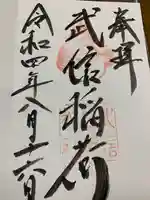 奉拝
武信稲荷
令和四年八月十六日